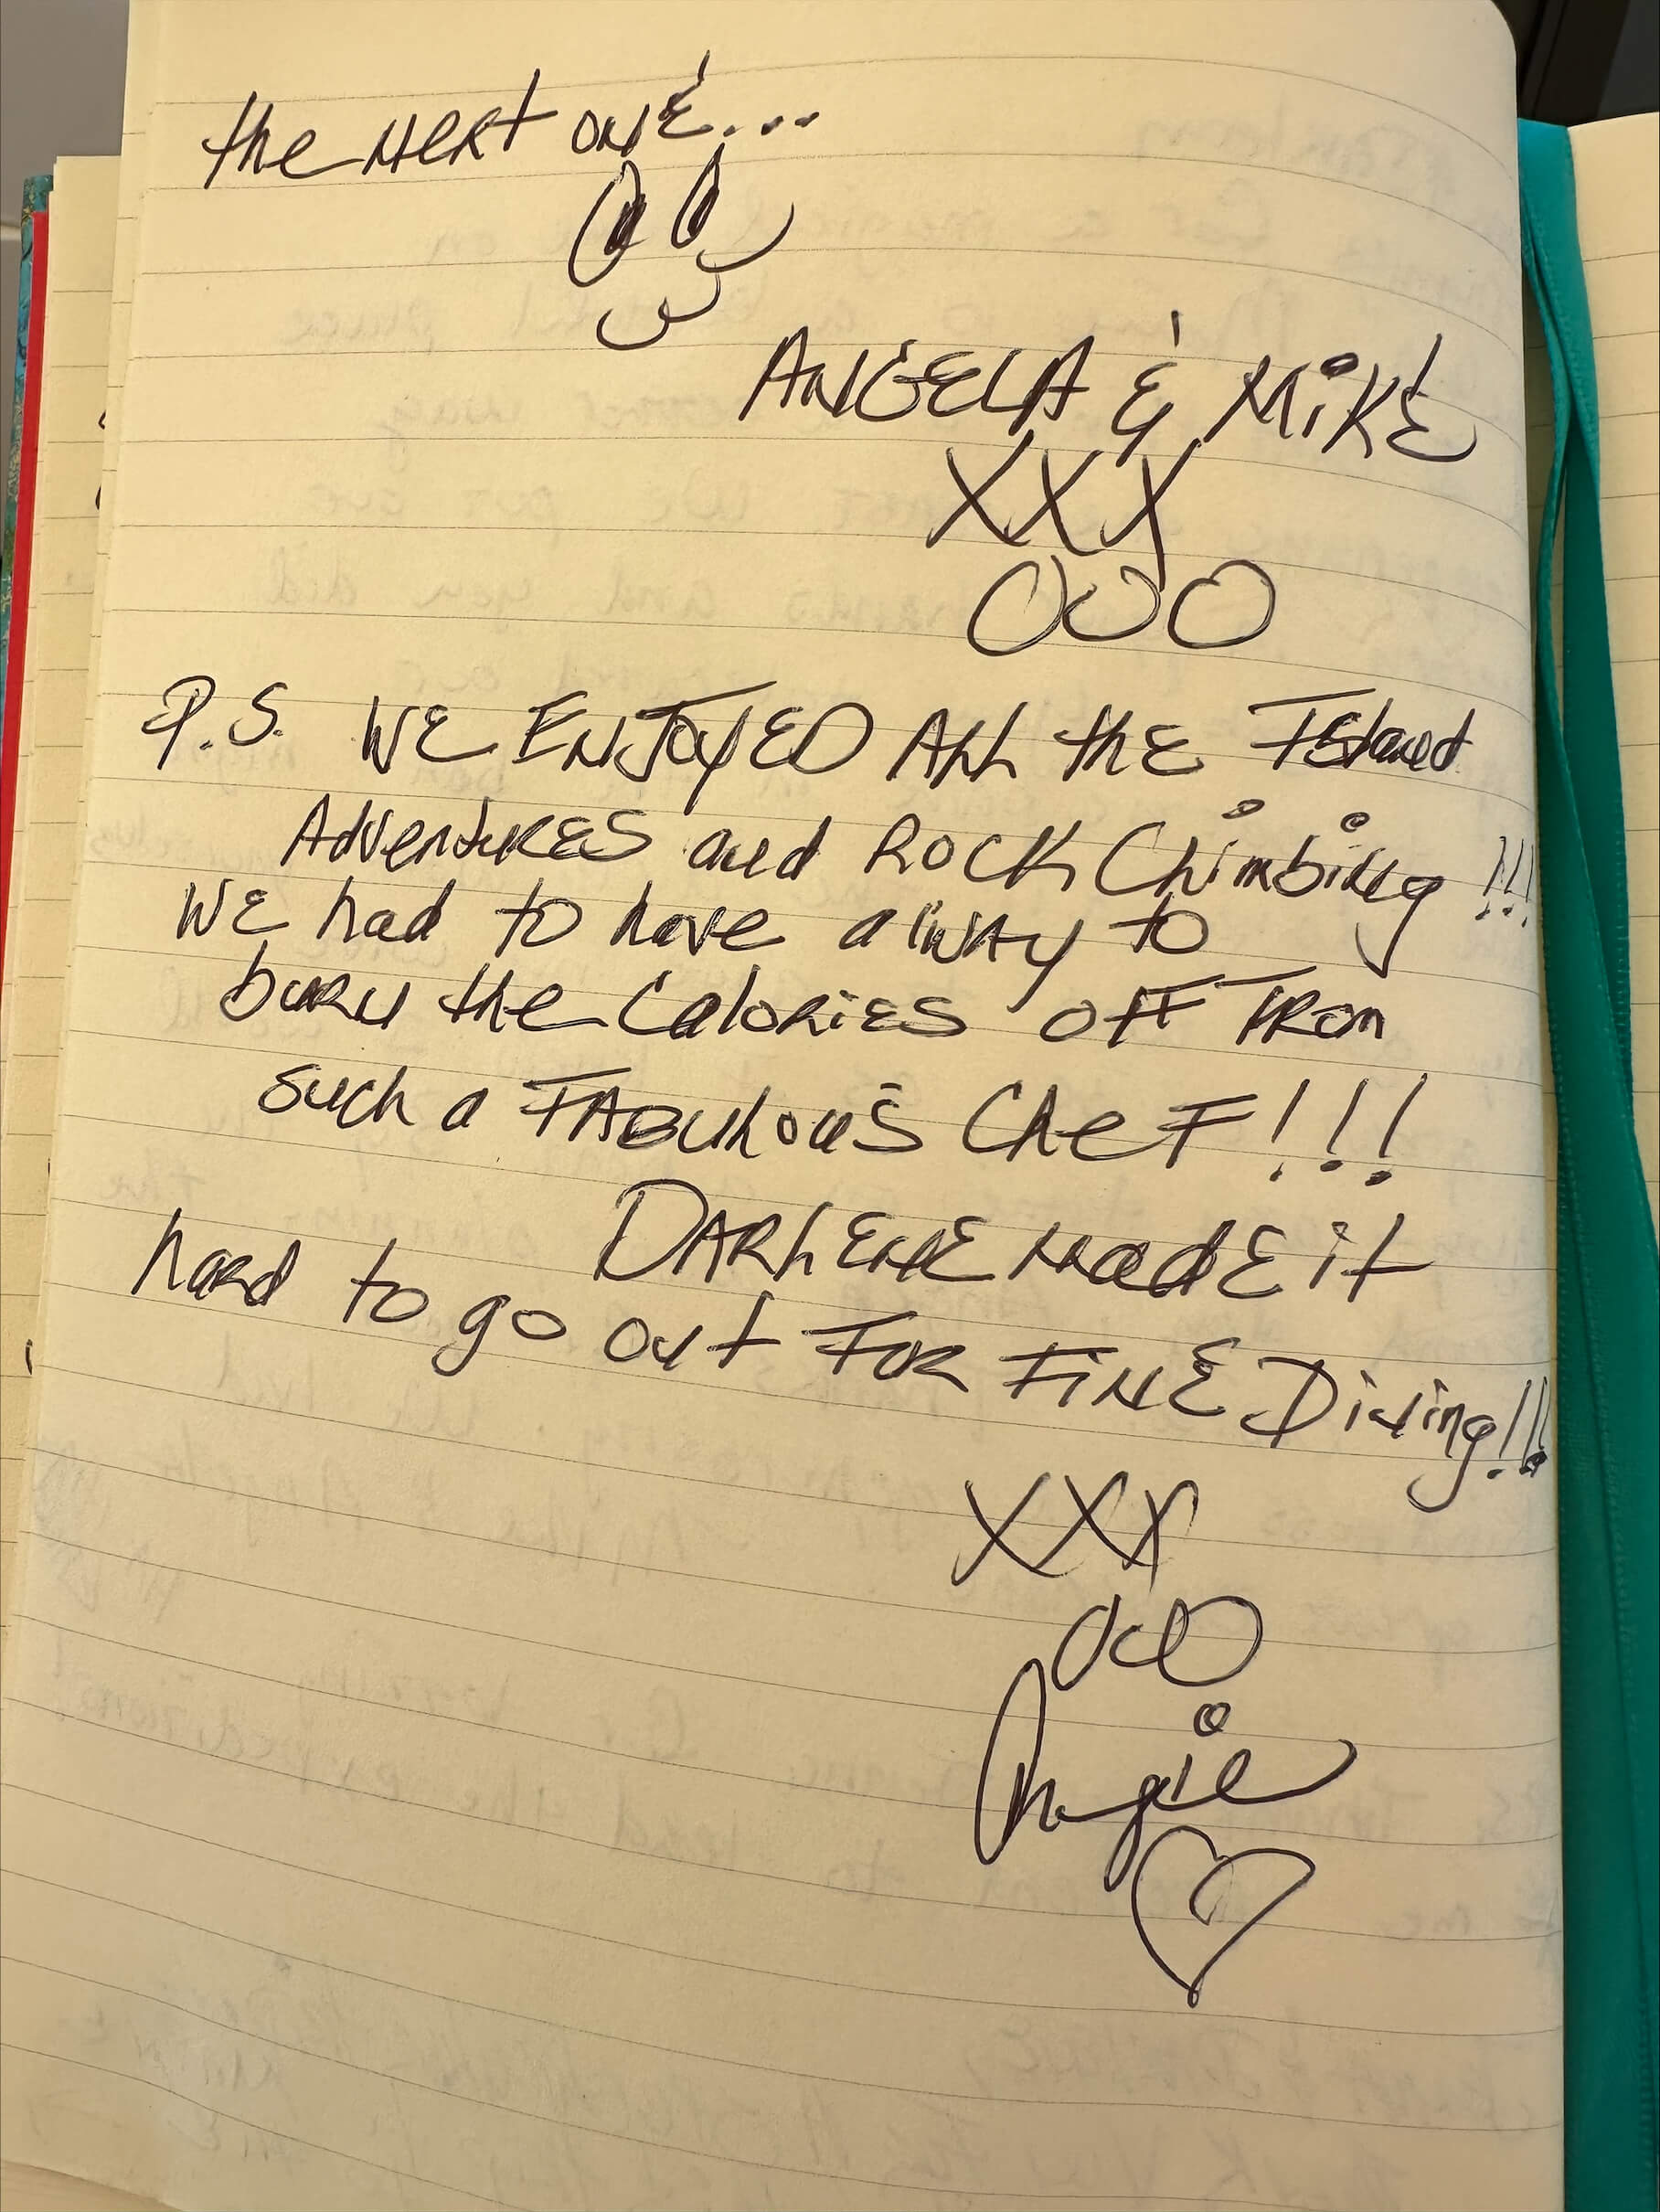 the next one...
ANGELA & MiKE
XXX
OOO
P.S. WE ENJOYED All the Island
Adventures and Rock Climbing !!!
WE had to have a way to
burn the Calories off from
such a FABulous Chef!!!
DARlENE made it
hard to go out For FiNE Dining!!!
XXX
OOO
Angie